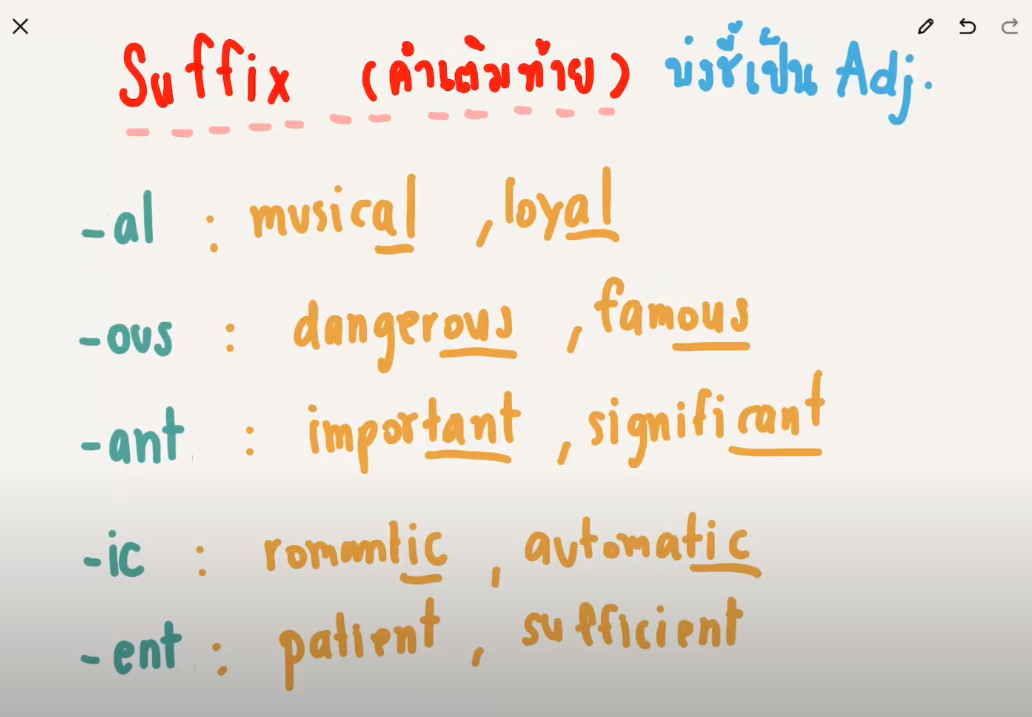 Suffix (คำเติมท้าย) บ่งชี้เป็น Adj.
-al : musical , loyal
-ous : dangerous , famous
-ant : important , significant
-ic : romantic , automatic
-ent : patient , sufficient